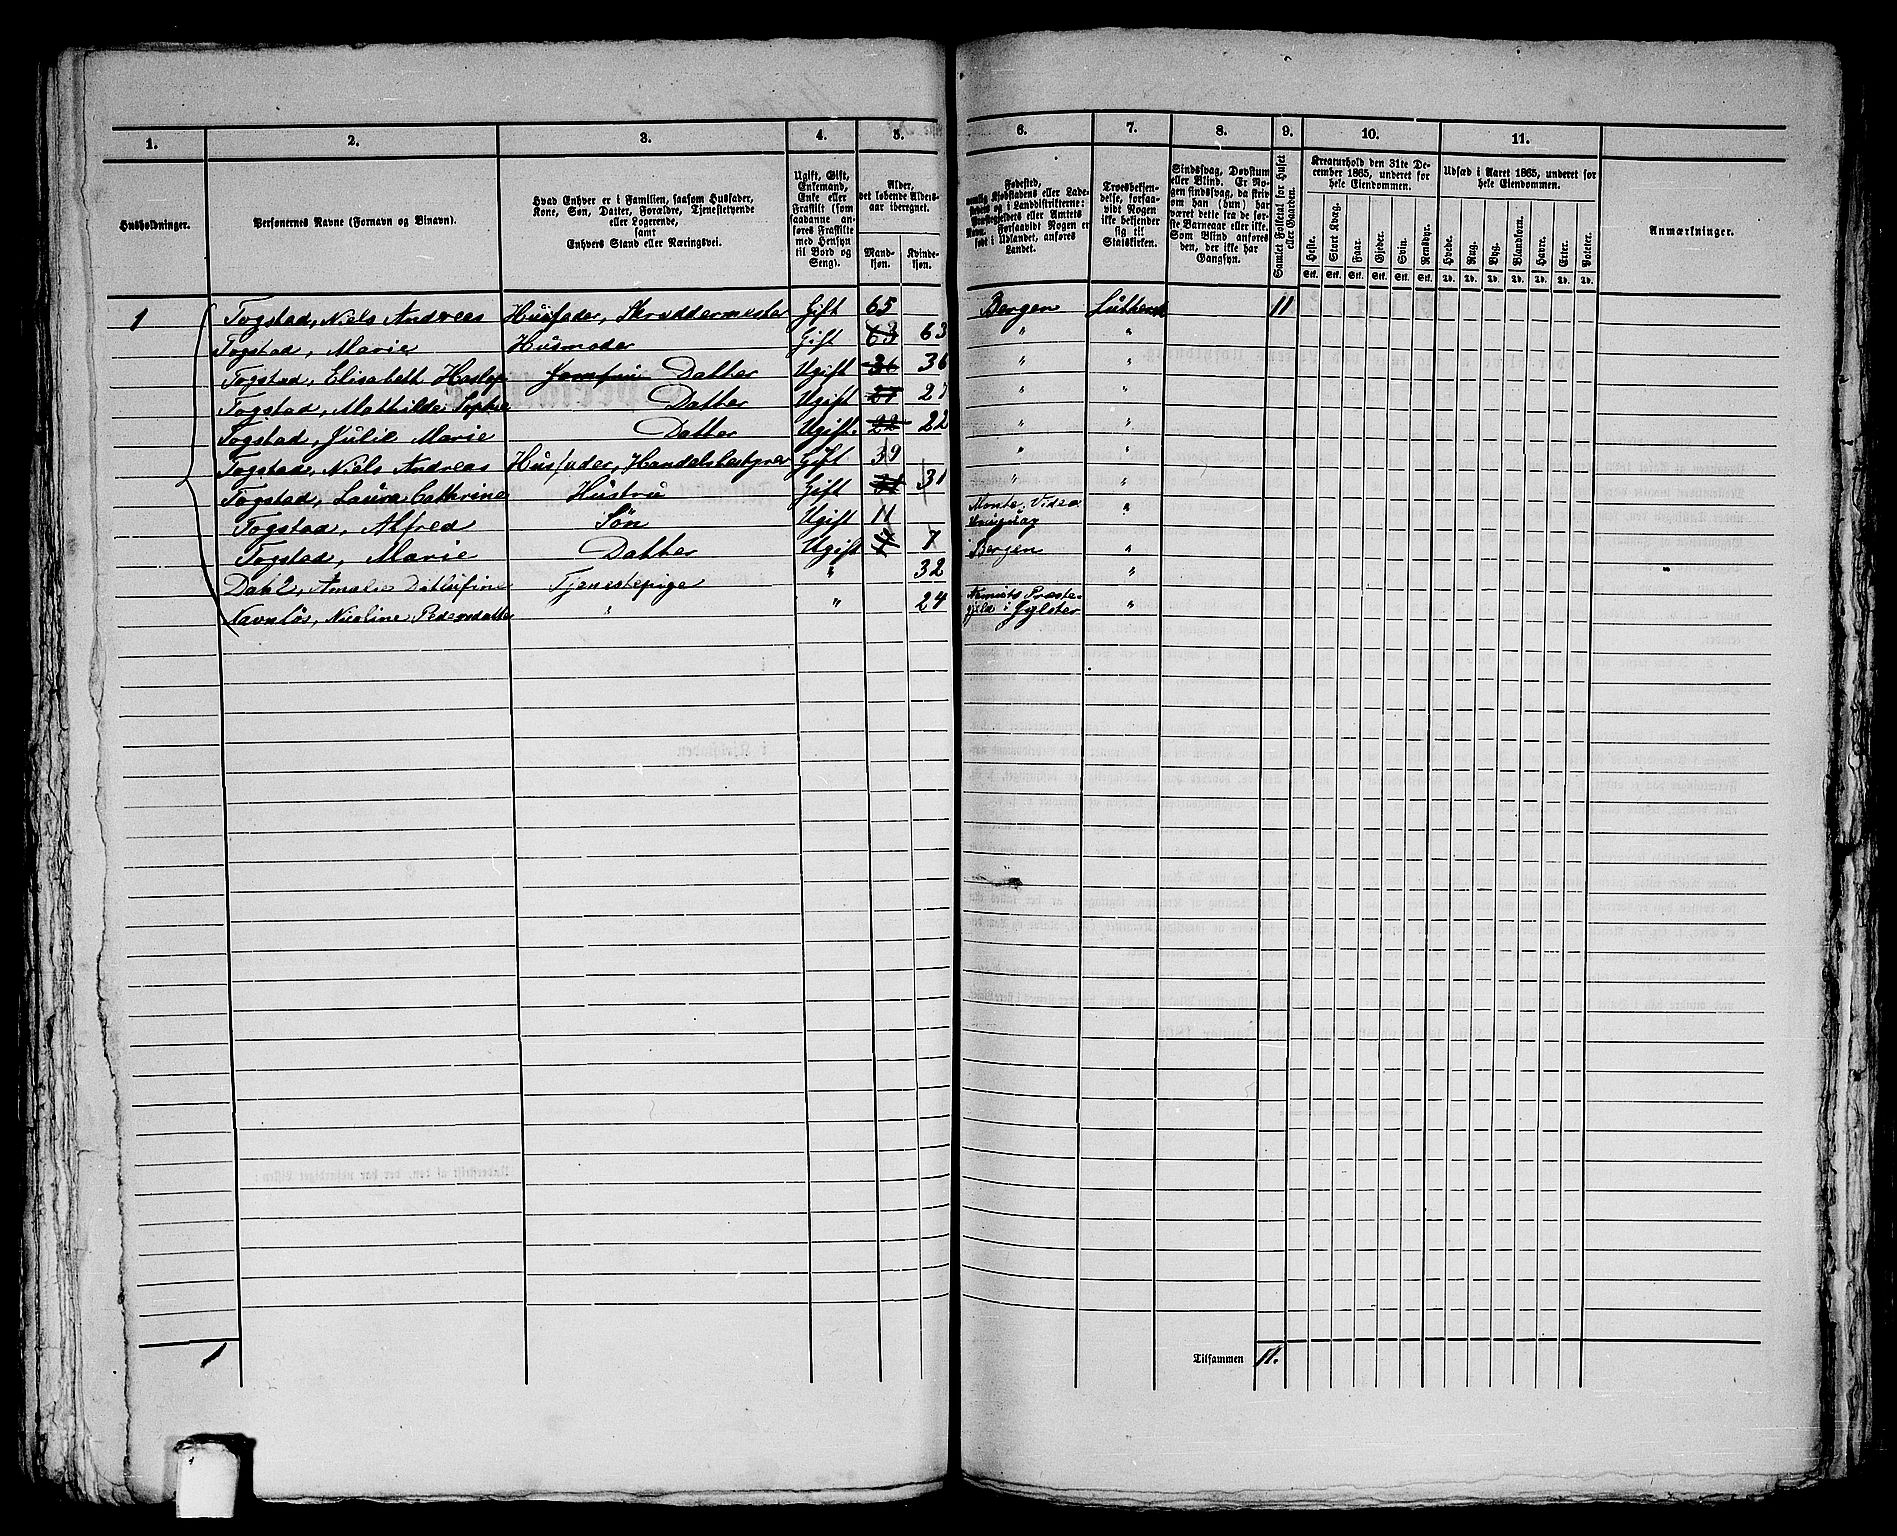 1. 2. 3. 4. 5. 6. 7. 8. 9. 10. 11.
Husholdninger.
Personernes Navne (Fornavn og Binavn).
Hvad Enhver er i Familien, saasom Husfader,
Kone, Søn, Datter, Forældre, Tjenestetyende
eller Logerende,
samt
Enhvers Stand eller Næringsvei.
Ugift, Gift,
Enkemand,
Enke eller
Fraskilt (som
saadanne an-
føres Fraskilte
med Hensyn
til Bord og
Seng).
Alder,
det løbende Alders-
aar iberegnet.
Mand-
kjøn.
Kvinde-
kjøn.
Fødested,
nemlig Kjøbstadens eller Lade-
stedets og i Landdistrikterne:
Præstegjeldets eller Amtets
Navn. Forsaavidt Nogen er
født i Udlandet, anføres
Landet.
Troesbekjen-
delse, forsaa-
vidt Nogen
ikke bekjender
sig til
Statskirken.
Sindssvag, Døvstum
eller Blind. Er No-
gen sindssvag, da skriv
om han (hun) har
været dette fra de før-
ste Barneaar eller ikke.
Som Blind anføres
den, der ikke har
Gangsyn.
Samlet Folketal for Huset
eller Gaarden.
Kreaturhold den 31te De-
cember 1865, underet for
hele Eiendommen.
Heste. Stort Kvæg. Faar. Gjeder. Svin. Rensdyr.
Stk. Stk. Stk. Stk. Stk. Stk.
Udsæd i Aaret 1865, underet for
hele Eiendommen.
Hvede. Rug. Byg. Blandkorn. Havre. Erter. Poteter.
Td. Td. Td. Td. Td. Td. Td.
Anmærkninger.
1 Togstad, Niels Andreas Husfader, Skræddermester Gift 65 Bergen Luthersk 11
Togstad, Marie Husmoder Gift 63 63 " "
Togstad, Elisabeth Haslop Jomfru Datter Ugift 36 36 " "
Togstad, Mathilde Sophie Datter Ugift 27 27 " "
Togstad, Julie Marie Datter Ugift. 22 22 " "
Togstad, Niels Andreas Husfader, Handelsbestyrer Gift 39 " "
Togstad, Laura Cathrine Hustru Gift 31 31 " "
Togstad, Alfred Søn Ugift 11 Monte, Video "
Togstad, Marie Datter Ugift 7 7 Bergen "
Dahl, Amalie Ditlufine Tjenestepige " 32 "
Navnløs, Nicoline Pedersdatter " " 24 Præste-
gjeld i "
1
Tilsammen 11.